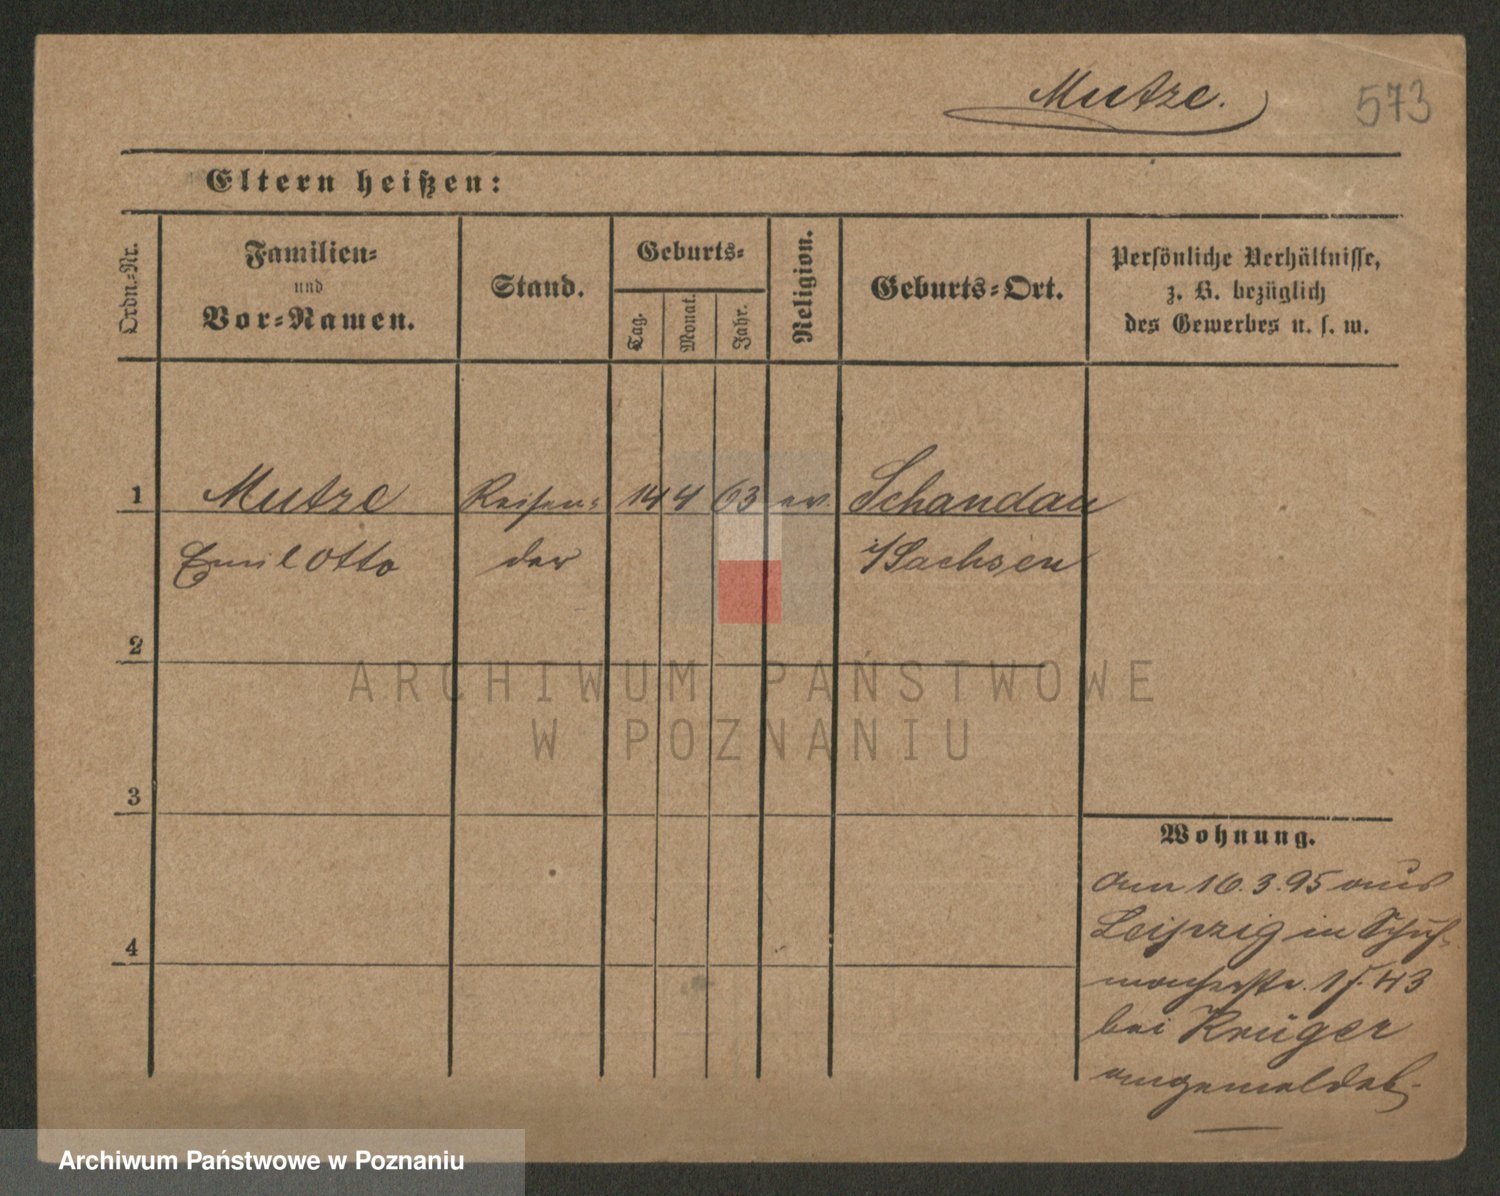 Mutze.
573
Eltern heißen:
Ordn.-Nr.
Familien-
und
Vor-Namen.
Stand.
Geburts-
Tag.
Monat.
Jahr.
Religion.
Geburts-Ort.
Persönliche Verhältnisse,
z. B. bezüglich
des Gewerbes u. s. w.
1 Mutze Reisen- 14 4 63 ev. Schandau
Emil Otto der i/Sachsen
2
3
4
Wohnung.
am 16.3.95 aus
Leipzig in Schuh-
macherstr. 43
bei Krüger
angemeldet.
ARCHIWUM PAŃSTWOWE
W POZNANIU
Archiwum Państwowe w Poznaniu